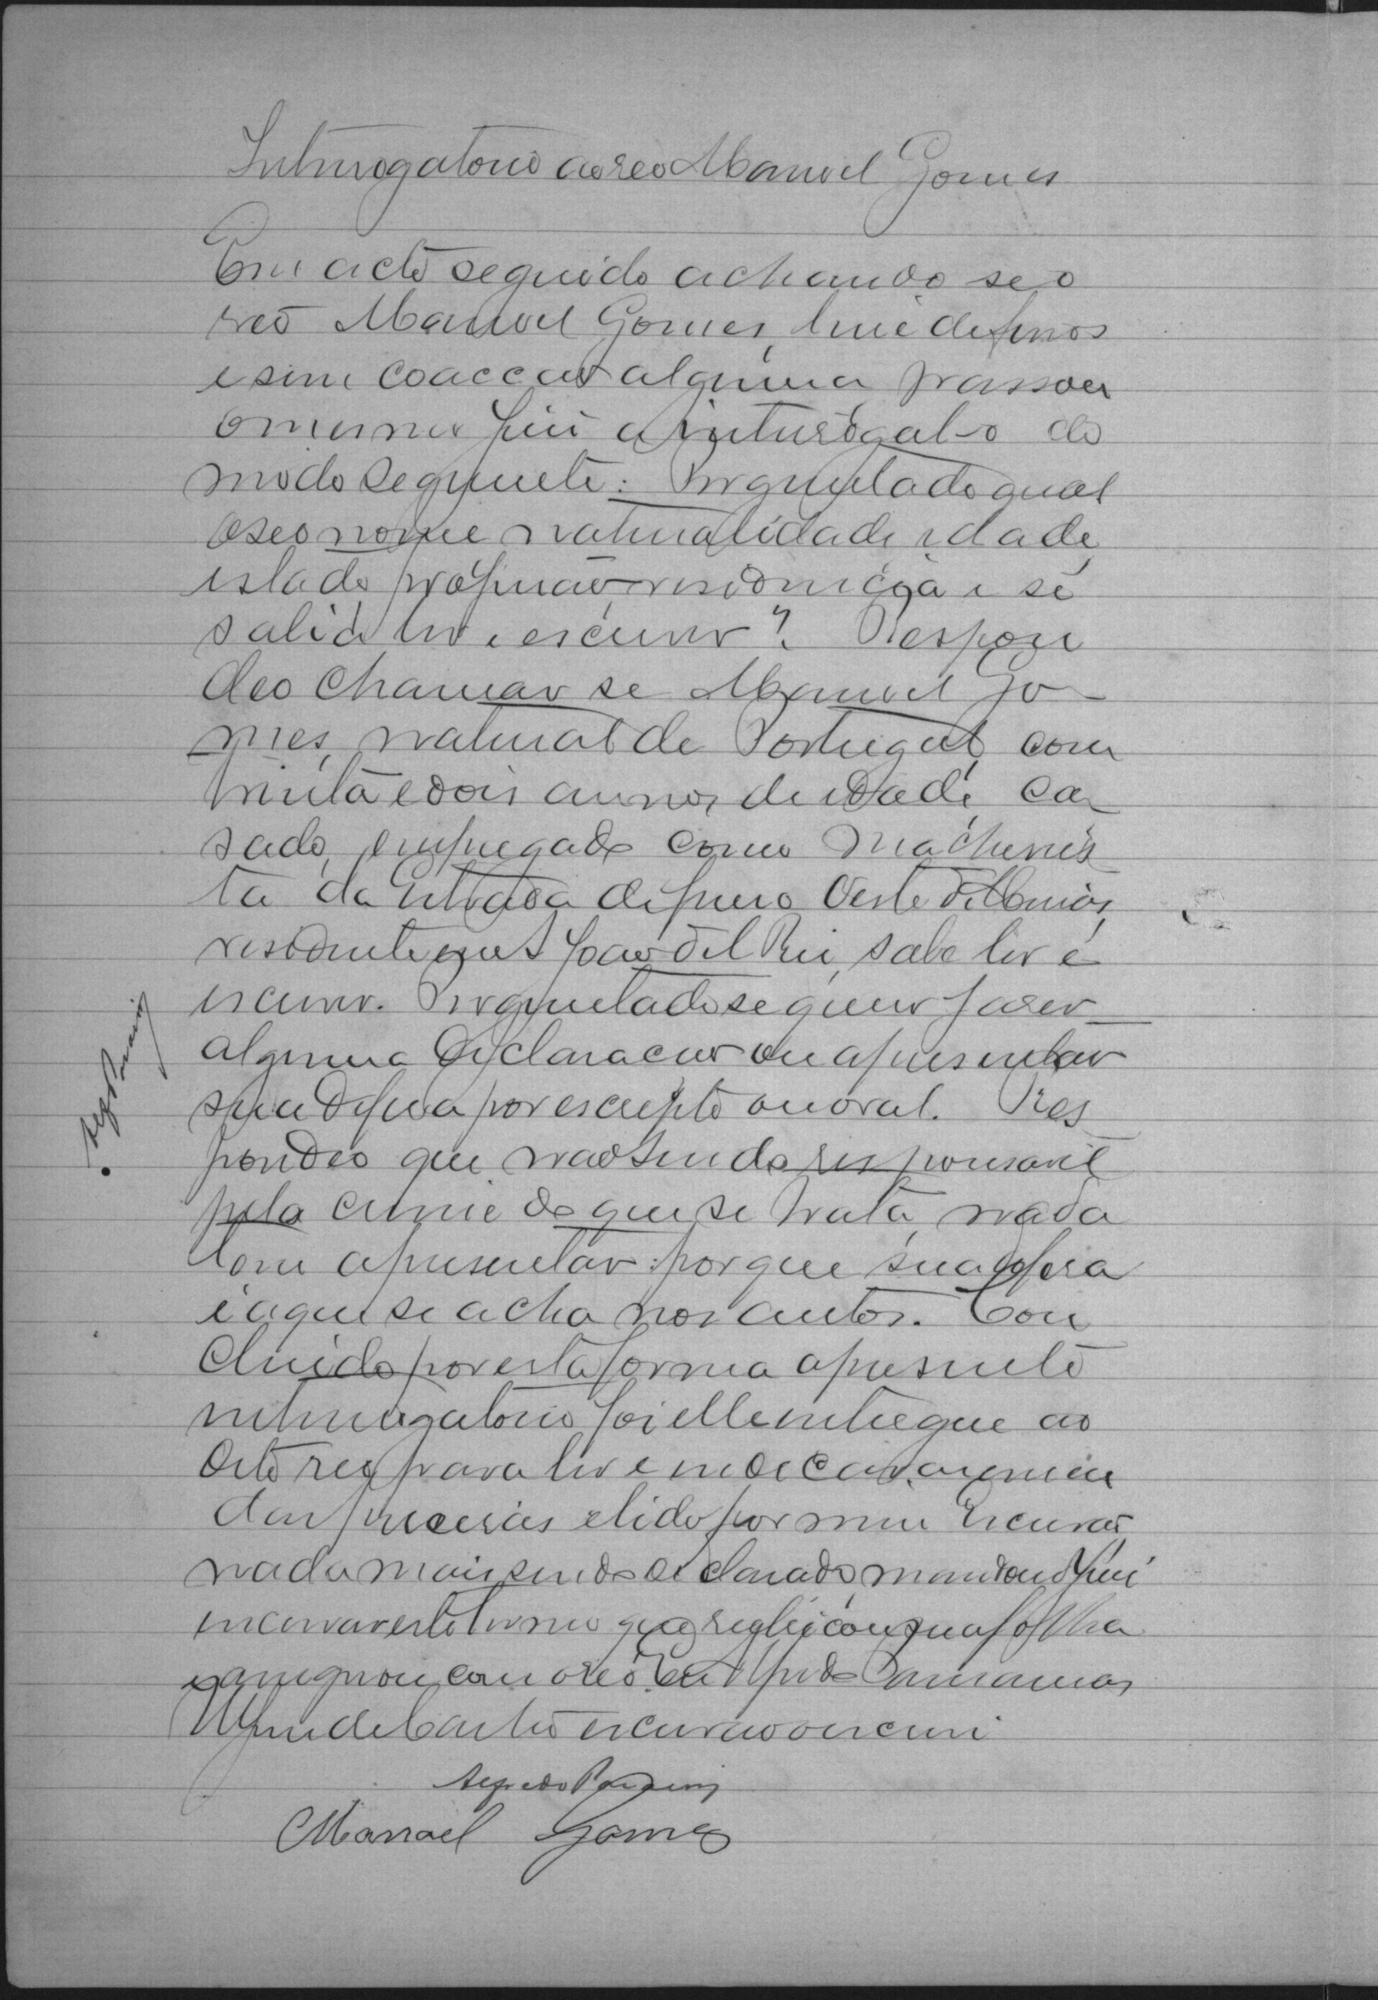 Interrogatorio ao reo Manoel Gomes
Em acto seguido achando se o
reo Manoel Gomes, livre de ferros
e sem coaccão alguma passou
o mesmo Juiz a interrogal-o do
modo seguinte: Perguntado qual
o seo nome naturalidade idade,
estado profissão, residencia e se
sabia ler e escrever? Respon
deo chamar se Manoel Go-
mes, natural de Portugal, com
trinta e dois annos, de idade, ca
sado, empregado como machinis
ta da Estrada de ferro Oeste de Minas,
residente em S João del Rei, sabe ler e
escrever. Perguntado se quer faser
alguma declaração ou apresentar
sua defesa por escripto ou oral. Res
pondeo que não sendo responsavel
pelo crime de que se trata, nada
tem apresentar: porque sua defesa
é a que se acha nos autos. Con
cluido por esta forma o presente
interrogatorio foi elle entregue ao
dito reo para ler e indicar as emen
das precisas e lido por mim Escrivão
nada mais sendo declarado, mandou o Juiz
encerrar este termo que
e assignou com o reo. Eu
de Castro escrivão o escrevi
Alfredo
Manoel Gomes